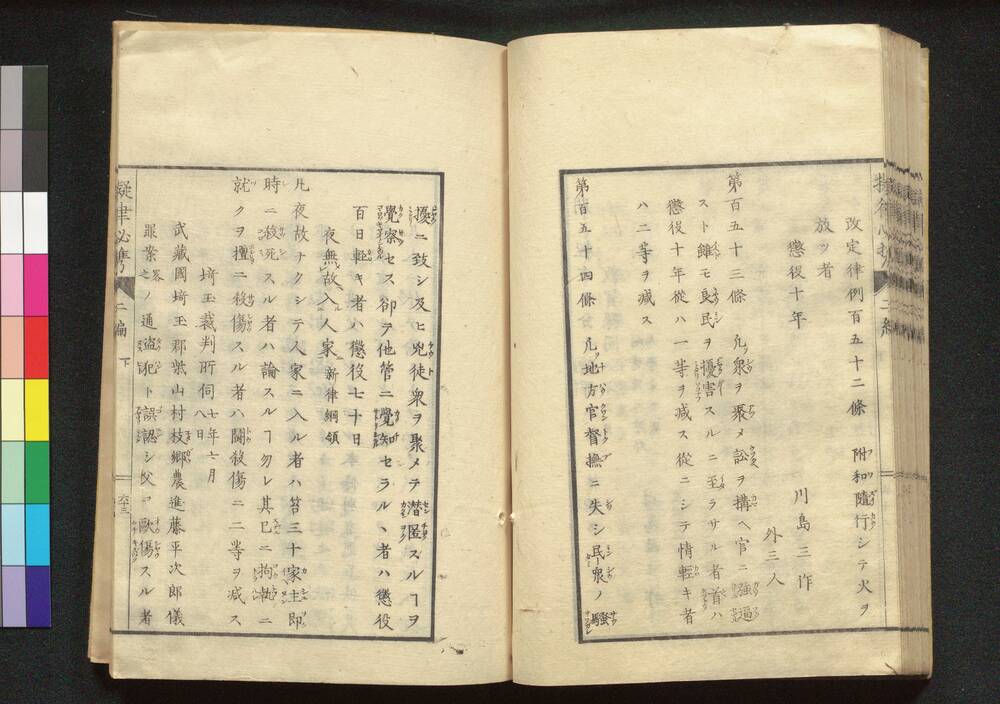 改定律例百五十二條　附和隨行シテ火ヲ
放ツ者
懲役十年
川島三作
外三人
第百五十三條　凡衆ヲ聚メ訟ヲ搆ヘ官ニ強逼
スト雖モ良民ヲ擾害スルニ至ラサル者首ハ
懲役十年從ハ一等ヲ減ス從ニシテ情輕キ者
ハ二等ヲ減ス
第百五十四條　凡地方官督撫ニ失シ民衆ノ騷
擾ニ致シ及ヒ兇徒衆ヲ聚メテ潜匿スルヿヲ
覺察セス卻テ他管ニ覺知セラルヽ者ハ懲役
百日輕キ者ハ懲役七十日
夜無故入人家　新律綱領
凡夜故ナクシテ人家ニ入ル者ハ笞三十家主即
時ニ殺死スル者ハ論スルヿ勿レ其已ニ拘執ニ
就クヲ擅ニ殺傷スル者ハ鬪殺傷ニ二等ヲ減ス
埼玉裁判所伺　七年六月八日
武藏國埼玉郡柴山村枝郷農進藤平次郎儀
罪案畧之ノ通盜犯ト誤認シ父ヲ毆傷スル者
擬律必携　二編　下
六十三